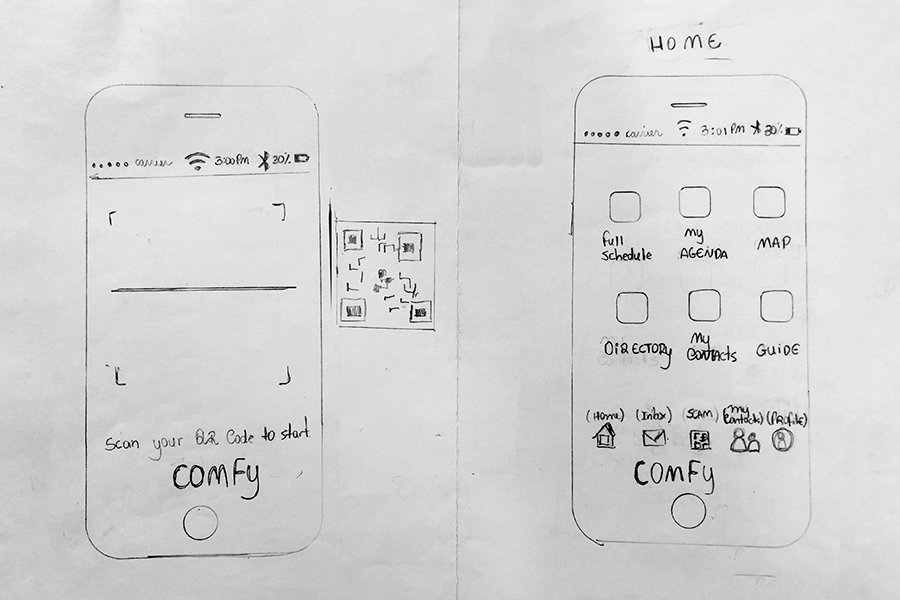 carrier 3:00 PM 30%
Scan your QR Code to start.
COMFY
HOME
carrier 3:01 PM 30%
full schedule
my AGENDA
MAP
DIRECTORY
my contacts
GUIDE
(Home) (Inbox) (SCAN) (my contacts) (PROFILE)
COMFY